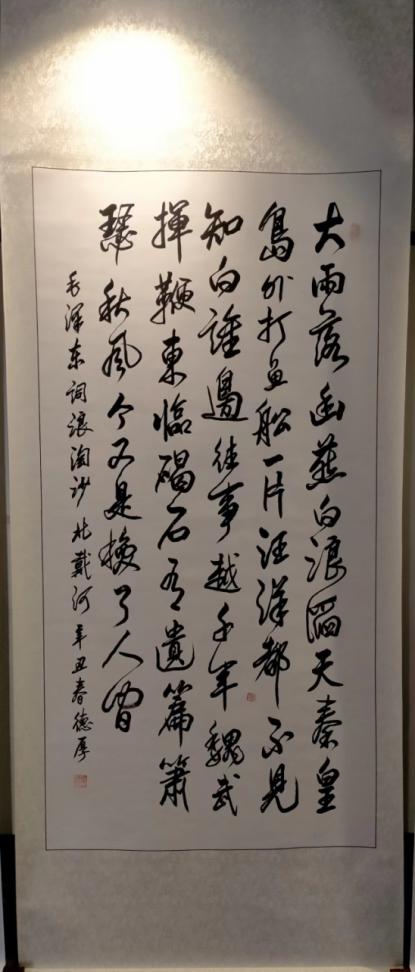 大雨落幽燕白浪滔天秦皇
島外打魚船一片汪洋都不見
知向誰邊往事越千年魏武
揮鞭東臨碣石有遺篇蕭
瑟秋風今又是換了人間
毛澤东詞浪淘沙北戴河辛丑春德厚